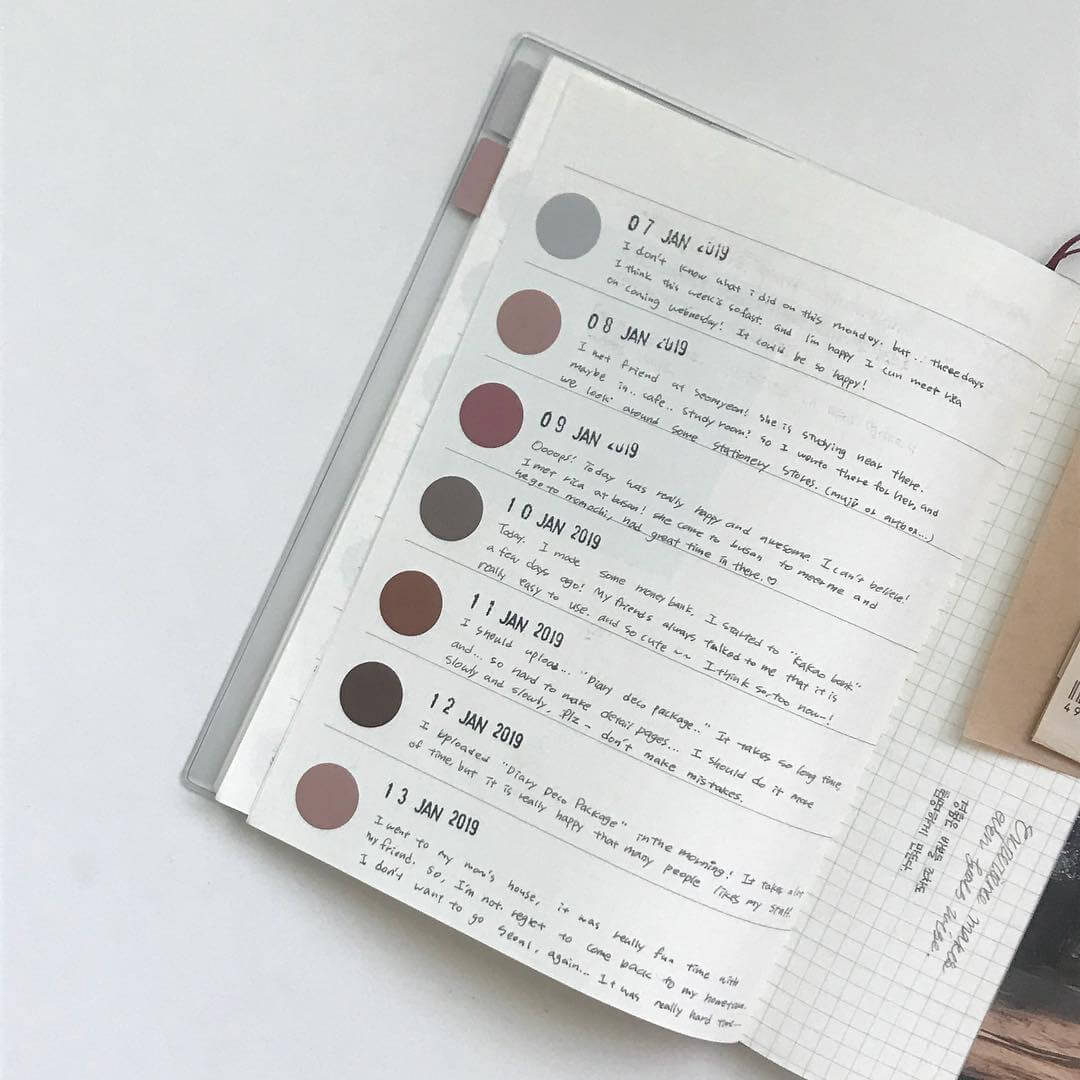 07 JAN 2019
I don't know what i did on this monday. but... thesedays
I think this week's so fast. and I'm happy I can meet rica
on coming wednesday! It could be so happy!
08 JAN 2019
I met friend at seomyeon! she is studying near there.
maybe in.. cafe.. study room? so I wento there for her, and
we look around some stationery stores. (muji or artbox...)
09 JAN 2019
Oooops! Today was really happy and awesome. I can't believe!
I met rica at busan! she came to busan to meet me and
we go to momochi, had great time in there.♡
10 JAN 2019
Today, I made some money bank. I started to "Kakao bank"
a few days ago! My friends always talked to me that it is
really easy to use. and so cute ~~ I think so, too now~!
11 JAN 2019
I should upload... "Diary deco package.." It takes so long time,
and... so hard to make detail pages... I should do it more
slowly and slowly. Plz - don't make mistakes.
12 JAN 2019
I uploaded "Diary Deco Package" in the morning! It takes a lot
of time, but it is really happy that many people likes my stuff.
13 JAN 2019
I went to my mom's house, it was really fun time with
my friend. so, I'm not regret to come back to my hometown.
I don't want to go Seoul, again... It was really hard time~
경험은 바보를 조차도
현명하게 만든다.
Experience makes
even fools wise.
49